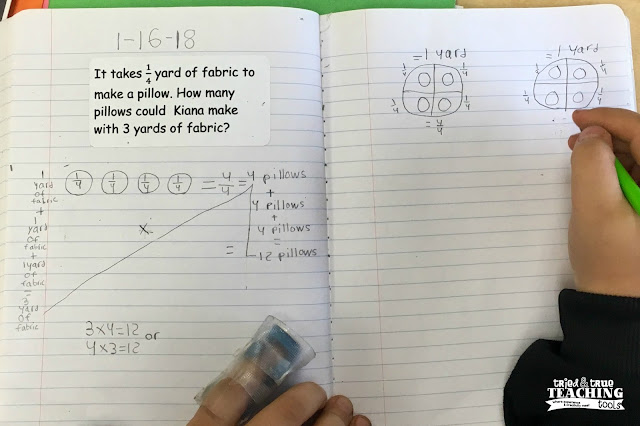 1-16-18
It takes 1/4 yard of fabric to
make a pillow. How many
pillows could Kiana make
with 3 yards of fabric?
1
yard
of
fabric
+
1
yard
of
fabric
+
1 yard
of
fabric
=
3
yard
of
fabric
1/4 1/4 1/4 1/4 = 4/4 = 4 pillows
+
4 pillows
+
4 pillows
=
= 12 pillows
X
3x4=12 or
4x3=12
= 1 yard
1/4 1/4
1/4 1/4
= 4/4
= 1 yard
1/4 1/4
1/4 1/4
=
tried & true
TEACHING
tools